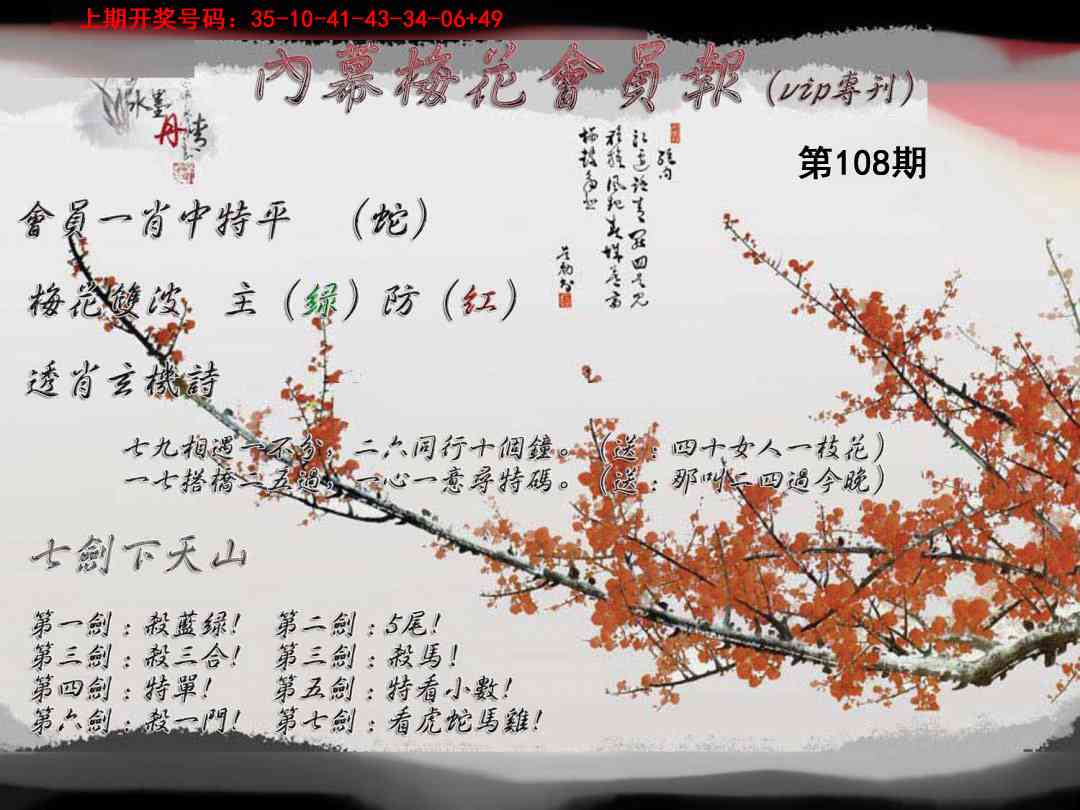 上期开奖号码：35-10-41-43-34-06+49
內幕梅花會員報（vip專刊）
水墨
丹青
第108期
會員一肖中特平　（蛇）
梅花雙波　主（绿）防（红）
透肖玄機詩
七九相遇一不分，二六同行十個鐘。（送：四十女人一枝花）
一七搭橋二五過，一心一意尋特碼。（送：那叫二四過今晚）
七劍下天山
第一劍：殺藍绿！　第二劍：5尾！
第三劍：殺三合！　第三劍：殺馬！
第四劍：特單！　第五劍：特看小數！
第六劍：殺一門！　第七劍：看虎蛇馬雞！